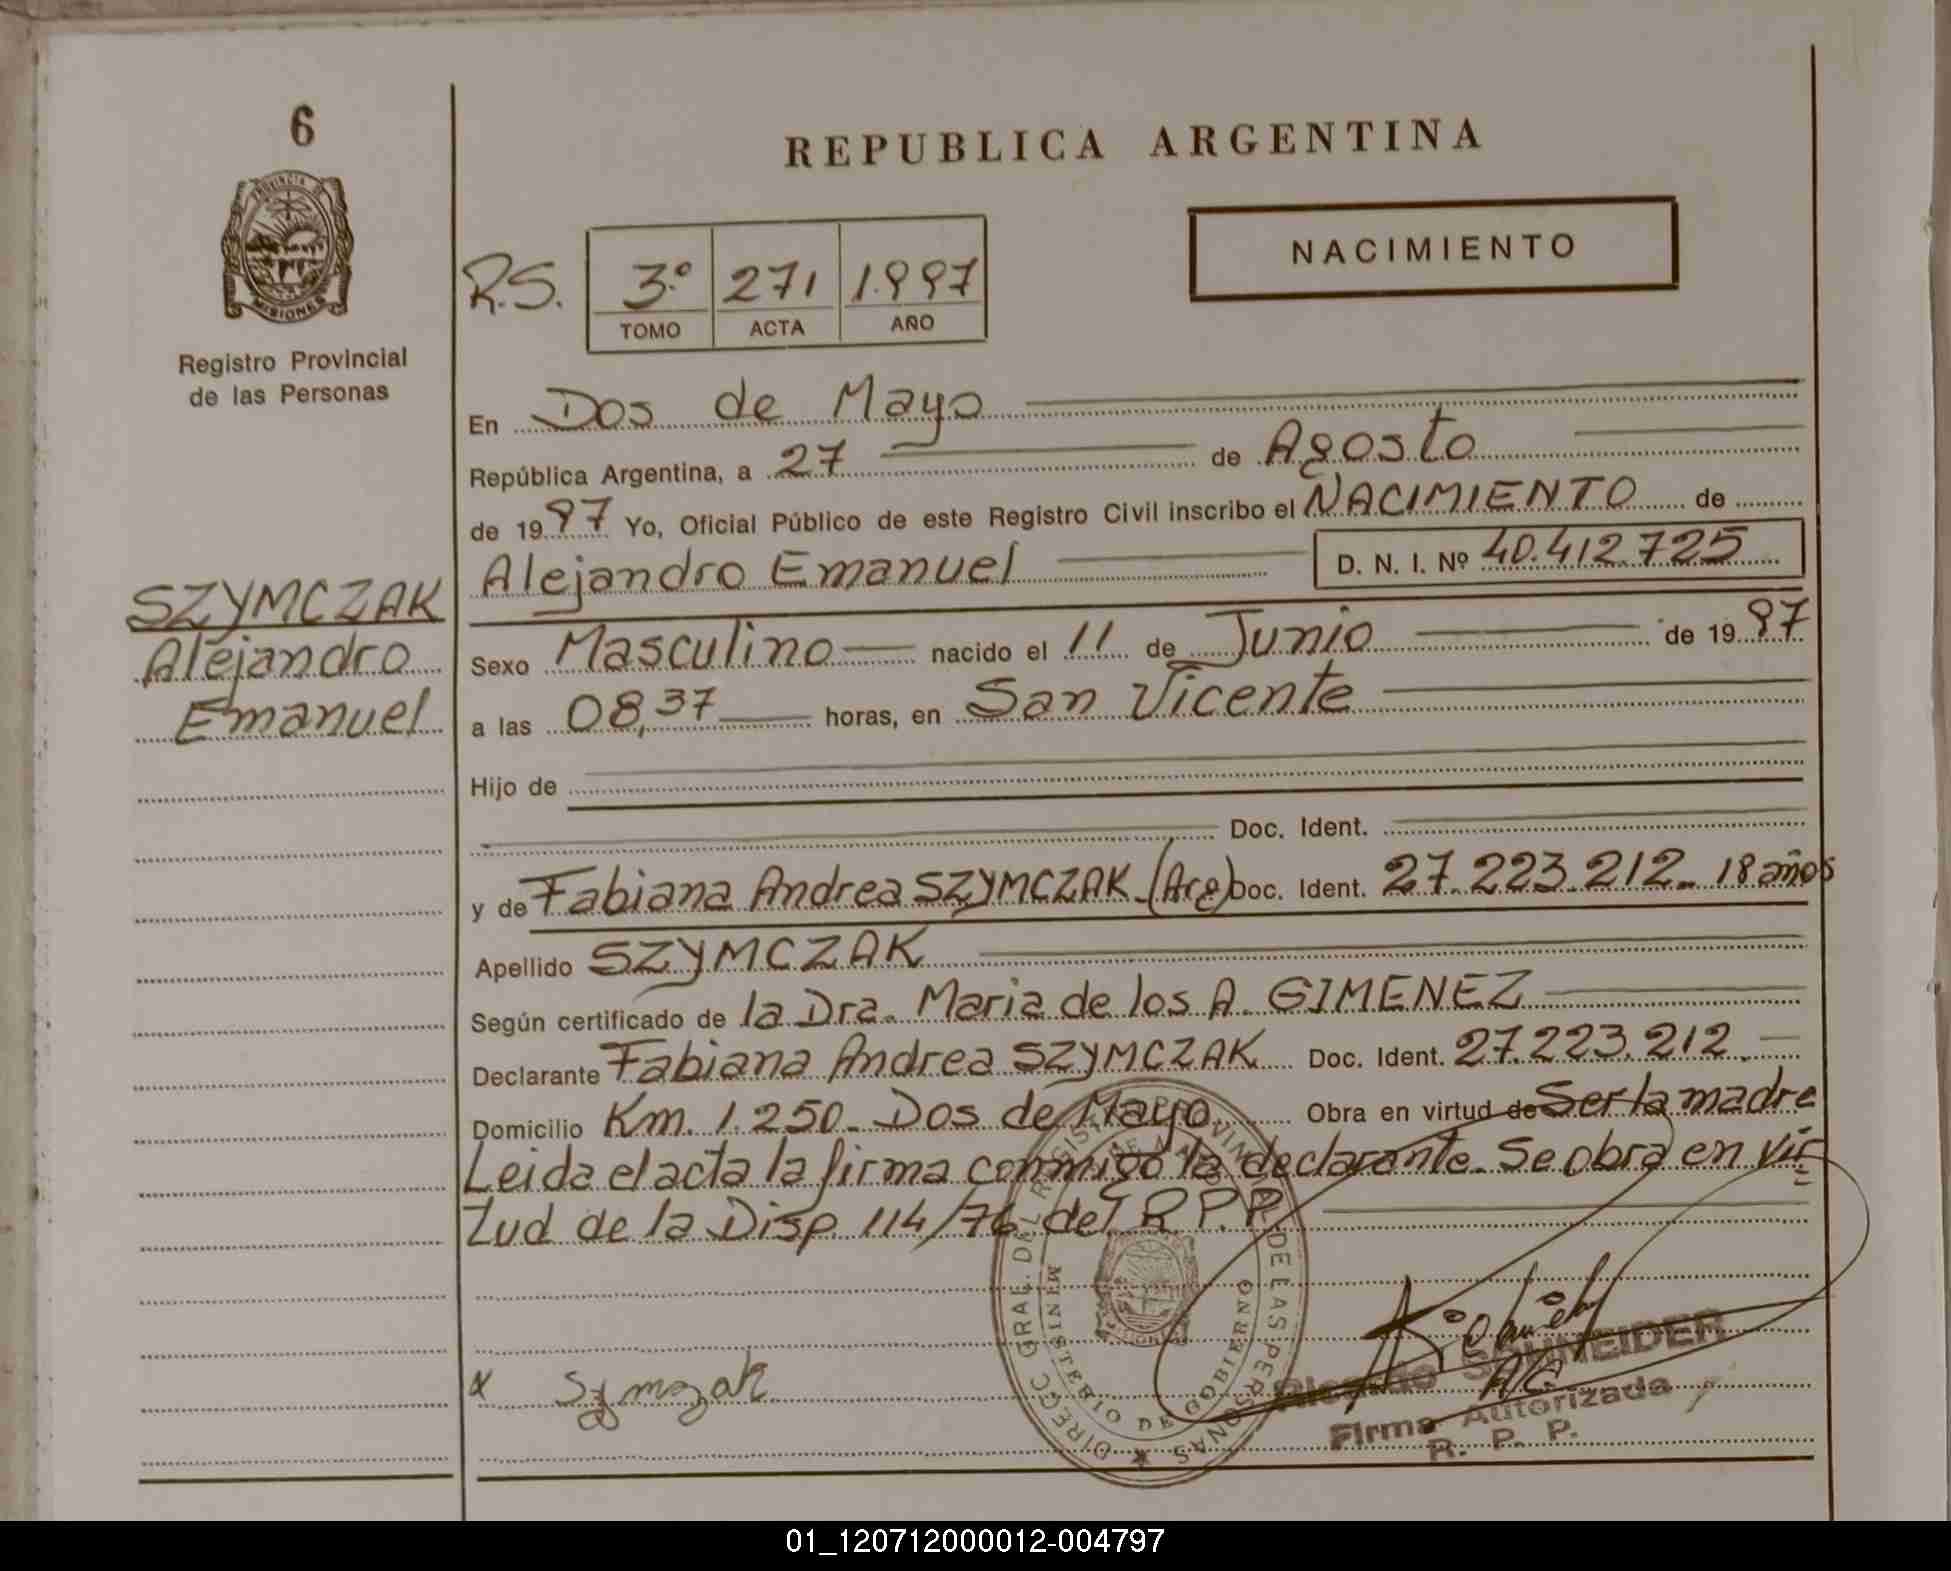 6
PROVINCIA DE
MISIONES
Registro Provincial
de las Personas
SZYMCZAK
Alejandro
Emanuel
REPUBLICA ARGENTINA
NACIMIENTO
R.S. 3º 271 1.997
TOMO ACTA AÑO
En Dos de Mayo
República Argentina, a 27 de Agosto
de 1997 Yo, Oficial Público de este Registro Civil inscribo el NACIMIENTO de
Alejandro Emanuel D. N. I. Nº 40.412.725
Sexo Masculino nacido el 11 de Junio de 1997
a las 08,37 horas, en San Vicente
Hijo de
Doc. Ident.
y de Fabiana Andrea SZYMCZAK (Arg) Doc. Ident. 27.223.212. 18 años
Apellido SZYMCZAK
Según certificado de la Dra. Maria de los A. GIMENEZ
Declarante Fabiana Andrea SZYMCZAK Doc. Ident. 27.223.212.
Domicilio Km. 1.250. Dos de Mayo Obra en virtud de Ser la madre
Leida el acta la firma conmigo la declarante. Se obra en vir=
tud de la Disp. 114/76 del R.P.P.
DIRECC GRAL. DEL REGISTRO PROVINCIAL DE LAS PERSONAS
MINISTERIO DE GOBIERNO
x Symczak
Ricardo SCHNEIDER
Firma Autorizada
R. P. P.
01_120712000012-004797